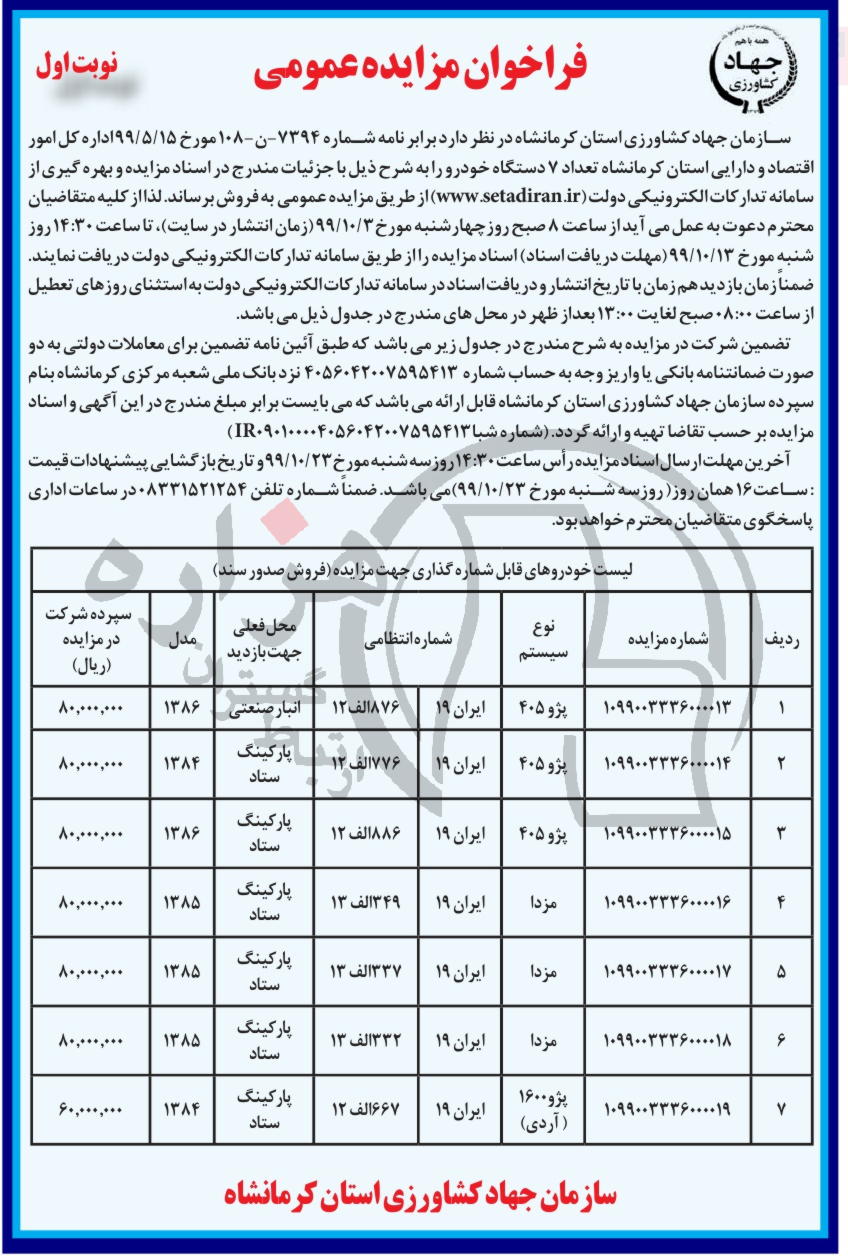 همه با هم
جهاد
کشاورزی
فراخوان مزایده عمومی
نوبت اول
سازمان جهاد کشاورزی استان کرمانشاه در نظر دارد برابر نامه شماره ۷۳۹۴-ن-۱۰۸ مورخ ۹۹/۵/۱۵ اداره کل امور
اقتصاد و دارایی استان کرمانشاه تعداد ۷ دستگاه خودرو را به شرح ذیل با جزئیات مندرج در اسناد مزایده و بهره گیری از
سامانه تدارکات الکترونیکی دولت (www.setadiran.ir) از طریق مزایده عمومی به فروش برساند. لذا از کلیه متقاضیان
محترم دعوت به عمل می آید از ساعت ۸ صبح روز چهارشنبه مورخ ۹۹/۱۰/۳ (زمان انتشار در سایت)، تا ساعت ۱۴:۳۰ روز
شنبه مورخ ۹۹/۱۰/۱۳ (مهلت دریافت اسناد) اسناد مزایده را از طریق سامانه تدارکات الکترونیکی دولت دریافت نمایند.
ضمناً زمان بازدید هم زمان با تاریخ انتشار و دریافت اسناد در سامانه تدارکات الکترونیکی دولت به استثنای روزهای تعطیل
از ساعت ۰۸:۰۰ صبح لغایت ۱۳:۰۰ بعداز ظهر در محل های مندرج در جدول ذیل می باشد.
تضمین شرکت در مزایده به شرح مندرج در جدول زیر می باشد که طبق آئین نامه تضمین برای معاملات دولتی به دو
صورت ضمانتنامه بانکی یا واریز وجه به حساب شماره ۴۰۵۶۰۴۲۰۰۷۵۹۵۴۱۳ نزد بانک ملی شعبه مرکزی کرمانشاه بنام
سپرده سازمان جهاد کشاورزی استان کرمانشاه قابل ارائه می باشد که می بایست برابر مبلغ مندرج در این آگهی و اسناد
مزایده بر حسب تقاضا تهیه و ارائه گردد. (شماره شبا IR۰۹۰۱۰۰۰۰۴۰۵۶۰۴۲۰۰۷۵۹۵۴۱۳)
آخرین مهلت ارسال اسناد مزایده رأس ساعت ۱۴:۳۰ روز سه شنبه مورخ ۹۹/۱۰/۲۳ و تاریخ بازگشایی پیشنهادات قیمت
: ساعت ۱۶ همان روز (روز سه شنبه مورخ ۹۹/۱۰/۲۳) می باشد. ضمناً شماره تلفن ۰۸۳۳۱۵۲۱۲۵۴ در ساعات اداری
پاسخگوی متقاضیان محترم خواهد بود.
لیست خودروهای قابل شماره گذاری جهت مزایده (فروش صدور سند)
ردیف شماره مزایده نوع سیستم شماره انتظامی محل فعلی جهت بازدید مدل سپرده شرکت در مزایده (ریال)
۱ ۱۰۹۹۰۰۳۳۳۶۰۰۰۰۱۳ پژو ۴۰۵ ایران ۱۹ ۸۷۶الف۱۲ انبار صنعتی ۱۳۸۶ ۸۰,۰۰۰,۰۰۰
۲ ۱۰۹۹۰۰۳۳۳۶۰۰۰۰۱۴ پژو ۴۰۵ ایران ۱۹ ۷۷۶الف ۱۲ پارکینگ ستاد ۱۳۸۴ ۸۰,۰۰۰,۰۰۰
۳ ۱۰۹۹۰۰۳۳۳۶۰۰۰۰۱۵ پژو ۴۰۵ ایران ۱۹ ۸۸۶الف ۱۲ پارکینگ ستاد ۱۳۸۶ ۸۰,۰۰۰,۰۰۰
۴ ۱۰۹۹۰۰۳۳۳۶۰۰۰۰۱۶ مزدا ایران ۱۹ ۳۴۹الف ۱۳ پارکینگ ستاد ۱۳۸۵ ۸۰,۰۰۰,۰۰۰
۵ ۱۰۹۹۰۰۳۳۳۶۰۰۰۰۱۷ مزدا ایران ۱۹ ۳۳۷الف ۱۳ پارکینگ ستاد ۱۳۸۵ ۸۰,۰۰۰,۰۰۰
۶ ۱۰۹۹۰۰۳۳۳۶۰۰۰۰۱۸ مزدا ایران ۱۹ ۳۳۲الف ۱۳ پارکینگ ستاد ۱۳۸۵ ۸۰,۰۰۰,۰۰۰
۷ ۱۰۹۹۰۰۳۳۳۶۰۰۰۰۱۹ پژو ۱۶۰۰ (آردی) ایران ۱۹ ۶۶۷الف ۱۲ پارکینگ ستاد ۱۳۸۴ ۶۰,۰۰۰,۰۰۰
هزاره
گستران
ارتباط
سازمان جهاد کشاورزی استان کرمانشاه